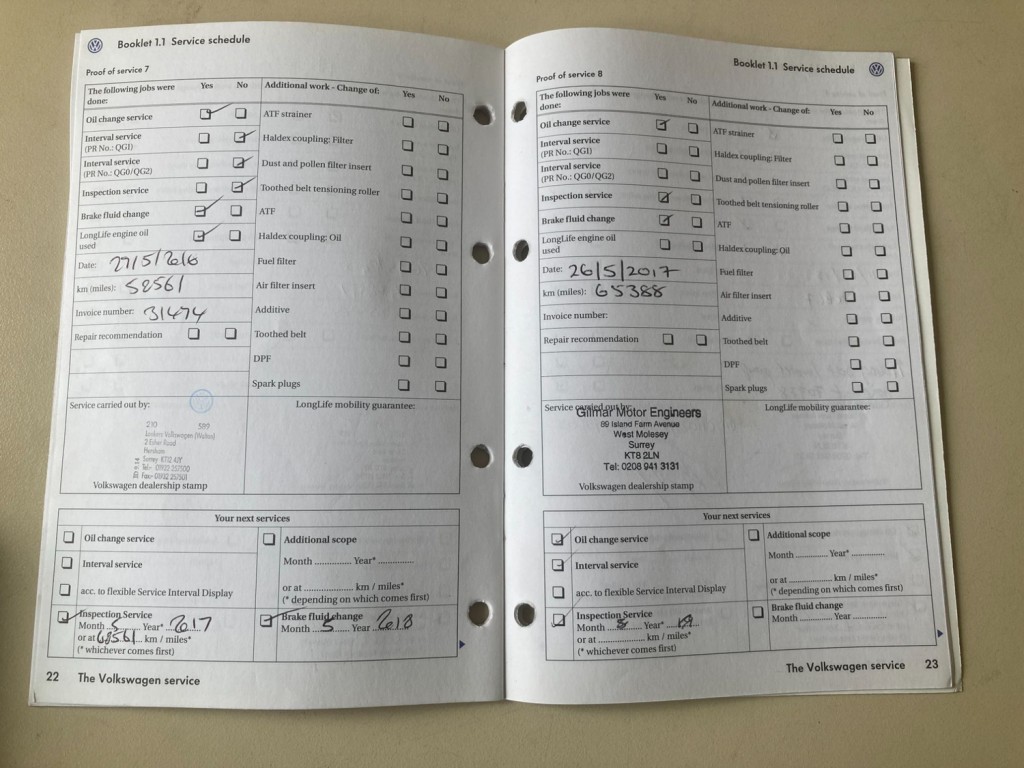 Booklet 1.1 Service schedule
Proof of service 7
The following jobs were done: Yes No
Oil change service
Interval service
(PR No.: QG1)
Interval service
(PR No.: QG0/QG2)
Inspection service
Brake fluid change
LongLife engine oil
used
Date: 27/5/2016
km (miles): 58561
Invoice number: 31474
Repair recommendation
Additional work - Change of: Yes No
ATF strainer
Haldex coupling: Filter
Dust and pollen filter insert
Toothed belt tensioning roller
ATF
Haldex coupling: Oil
Fuel filter
Air filter insert
Additive
Toothed belt
DPF
Spark plugs
Service carried out by:
210 589
Volkswagen (Walton)
2 Esher Road
Hersham
Surrey KT12 4JY
Tel: 01932 257500
Fax: 01932 257501
Volkswagen dealership stamp
LongLife mobility guarantee:
Your next services
Oil change service
Interval service
acc. to flexible Service Interval Display
Inspection Service
Month 5 Year* 2017
or at 68561 km / miles*
(* whichever comes first)
Additional scope
Month .............. Year* ..............
or at .................... km / miles*
(* depending on which comes first)
Brake fluid change
Month 5 Year 2018
22 The Volkswagen service
Booklet 1.1 Service schedule
Proof of service 8
The following jobs were done: Yes No
Oil change service
Interval service
(PR No.: QG1)
Interval service
(PR No.: QG0/QG2)
Inspection service
Brake fluid change
LongLife engine oil
used
Date: 26/5/2017
km (miles): 65388
Invoice number:
Repair recommendation
Additional work - Change of: Yes No
ATF strainer
Haldex coupling: Filter
Dust and pollen filter insert
Toothed belt tensioning roller
ATF
Haldex coupling: Oil
Fuel filter
Air filter insert
Additive
Toothed belt
DPF
Spark plugs
Service carried out by:
Gilmar Motor Engineers
89 Island Farm Avenue
West Molesey
Surrey
KT8 2LN
Tel: 0208 941 3131
Volkswagen dealership stamp
LongLife mobility guarantee:
Your next services
Oil change service
Interval service
acc. to flexible Service Interval Display
Inspection Service
Month 5 Year*
or at .................... km / miles*
(* whichever comes first)
Additional scope
Month ............ Year* ..............
or at .................... km / miles*
(* depending on which comes first)
Brake fluid change
Month ............ Year ..............
The Volkswagen service 23